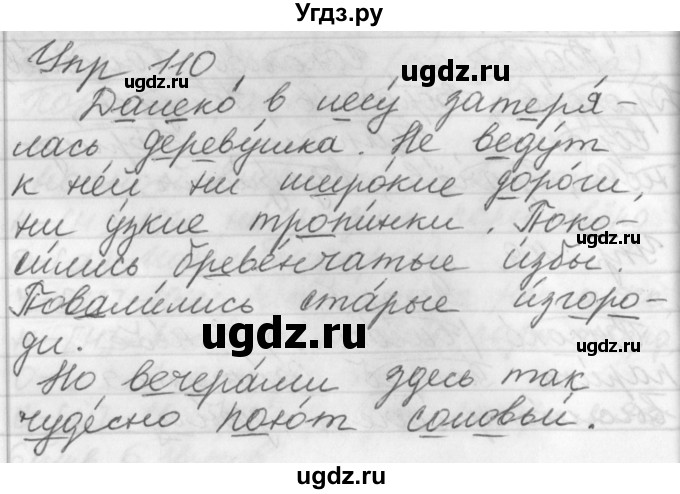 Угдз.ру
Упр 110
ugdz.ru
ugdz.ru
Далеко́ в лесу́ затеря́-
лась дереву́шка. Не веду́т
к не́й ни широ́кие доро́ги,
ни у́зкие тропи́нки. Поко-
ugdz.ru
си́лись бреве́нчатые и́збы.
Повали́лись ста́рые и́згоро-
ugdz.ru
ugdz.ru
ди.
Но вечера́ми здесь так
чуде́сно пою́т соловьи́.
ugdz.ru